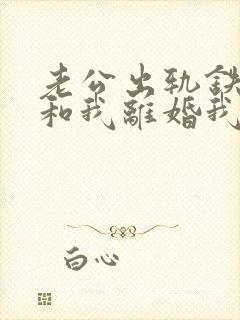 老公出轨
和我離婚我
白心